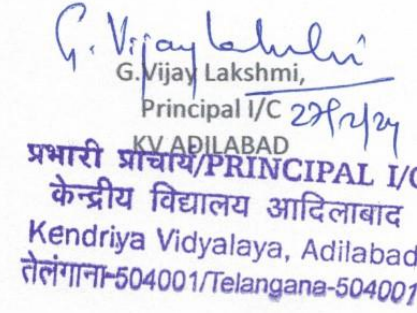 G. Vijay Lakshmi
G.Vijay Lakshmi,
Principal I/C 27/2/24
KV ADILABAD
प्रभारी प्राचार्य/PRINCIPAL I/C
केन्द्रीय विद्यालय आदिलाबाद
Kendriya Vidyalaya, Adilabad
तेलंगाना-504001/Telangana-504001